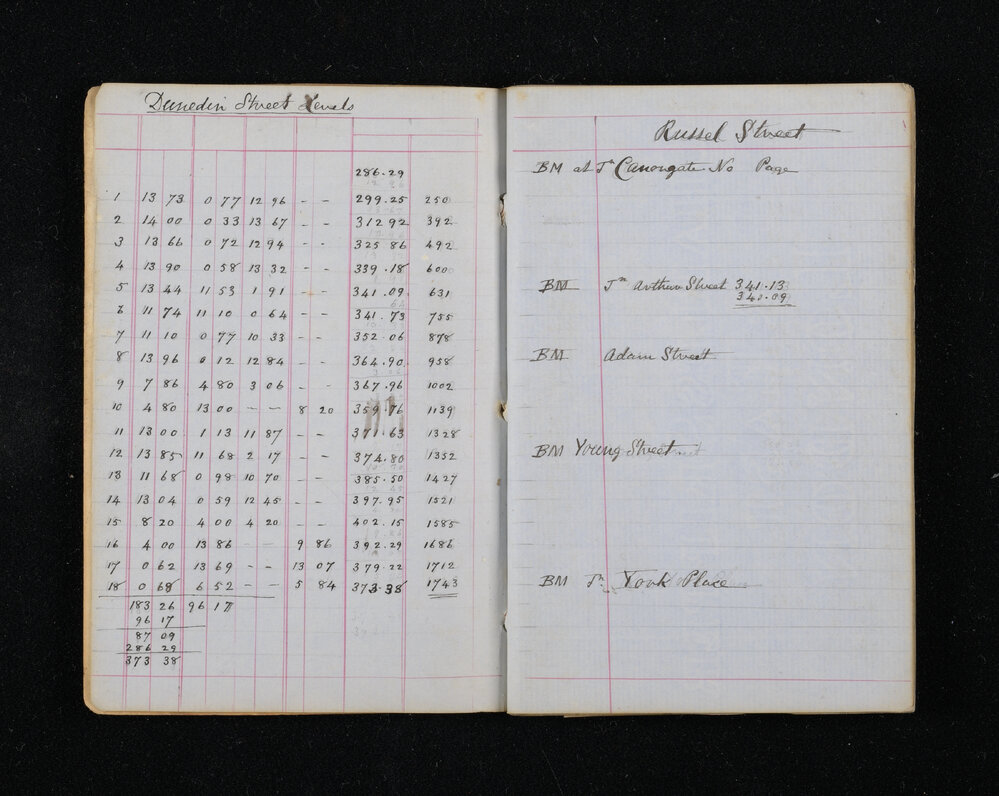 Dunedin Street Levels
286.29
1 13 73 0 77 12 96 - - 299.25 250
2 14 00 0 33 13 67 - - 312 92 392
3 13 66 0 72 12 94 - - 325 86 492
4 13 90 0 58 13 32 - - 339.18 600
5 13 44 11 53 1 91 - - 341.09 631
6 11 74 11 10 0 64 - - 341.73 755
7 11 10 0 77 10 33 - - 352 06 878
8 13 96 0 12 12 84 - - 364.90 958
9 7 86 4 80 3 06 - - 367.96 1002
10 4 80 13 00 - - 8 20 359.76 1139
11 13 00 1 13 11 87 - - 371.63 1328
12 13 85 11 68 2 17 - - 374.80 1352
13 11 68 0 98 10 70 - - 385.50 1427
14 13 04 0 59 12 45 - - 397.95 1521
15 8 20 4 00 4 20 - - 402.15 1585
16 4 00 13 86 - - 9 86 392.29 1686
17 0 62 13 69 - - 13 07 379.22 1712
18 0 68 6 52 - - 5 84 373.38 1743
183 26 96 17
96 17
87 09
286 29
373 38
Russel Street
BM at Jn Canongate No Page
BM Jn Arthur Street 341.13
341.09
BM Adam Street
BM Young Street
BM Jn York Place